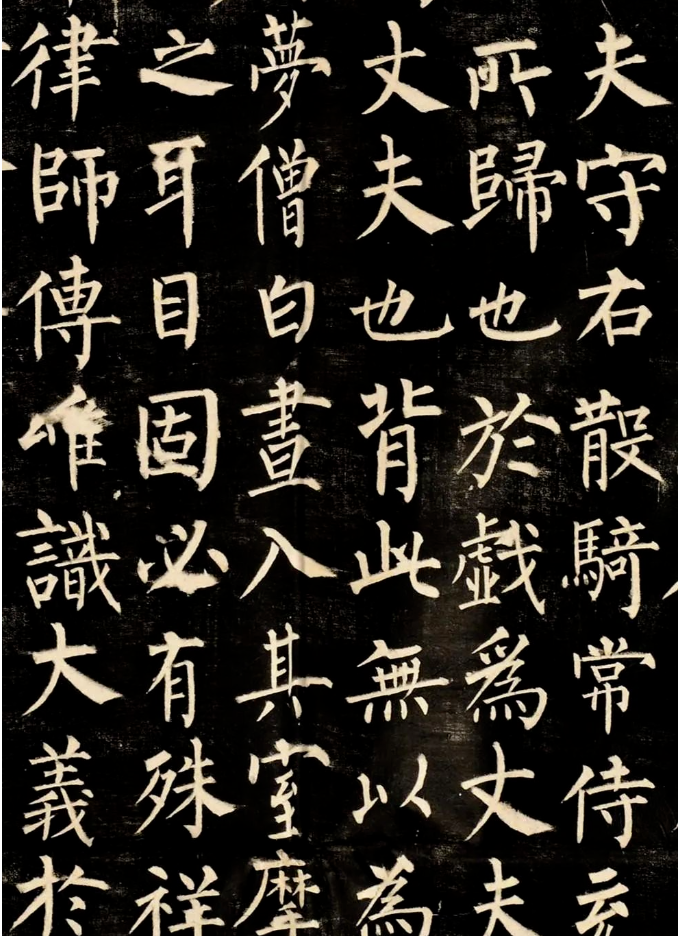 夫守右散騎常侍玄
所歸也於戲為丈夫
丈夫也背此無以為
夢僧白晝入其室摩
之耳目固必有殊祥
律師傳唯識大義於